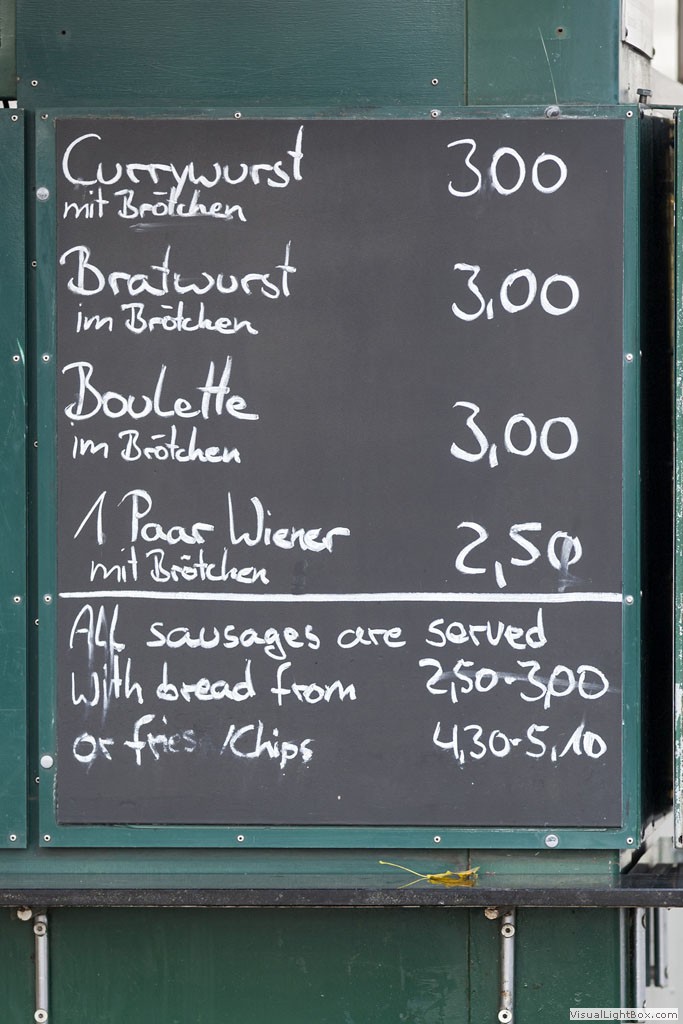 Currywurst 3,00
mit Brötchen
Bratwurst 3,00
im Brötchen
Boulette 3,00
im Brötchen
1 Paar Wiener 2,50
mit Brötchen
All sausages are served
with bread from 2,50-3,00
or fries /Chips 4,30-5,10
VisualLightBox.com